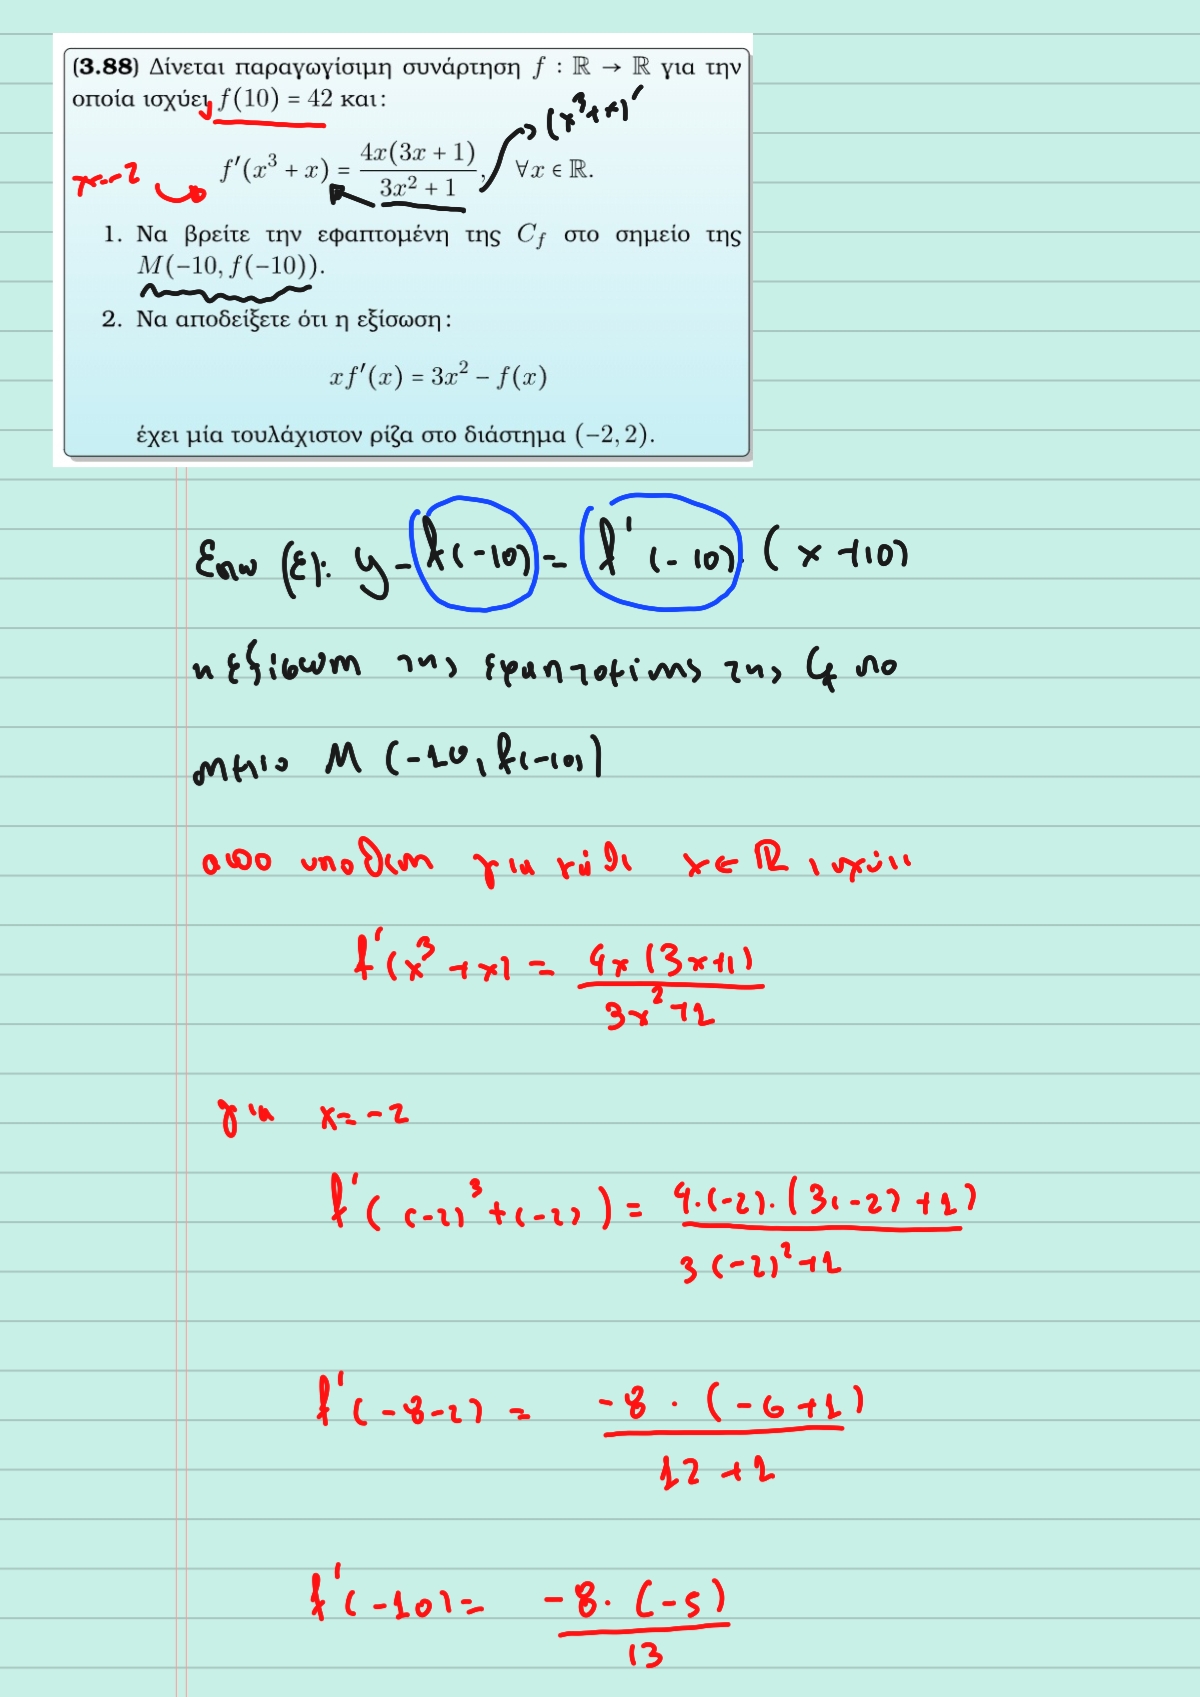 (3.88) Δίνεται παραγωγίσιμη συνάρτηση f : ℝ → ℝ για την
οποία ισχύει f(10) = 42 και:
(x³+x)′
x=-2
f′(x³ + x) = 4x(3x + 1) / 3x² + 1, ∀x ∈ ℝ.
1. Να βρείτε την εφαπτομένη της C_f στο σημείο της
M(−10, f(−10)).
2. Να αποδείξετε ότι η εξίσωση:
xf′(x) = 3x² − f(x)
έχει μία τουλάχιστον ρίζα στο διάστημα (−2, 2).
Εστω (ε): y - f(-10) = f′(-10) (x+10)
η εξίσωση της εφαπτομένης της Cf στο
σημειο M (-10, f(-10))
απο υποθεση για κάθε x ∈ ℝ ισχύει
f′(x³+x) = 4x(3x+1) / 3x²+1
για x=-2
f′((-2)³+(-2)) = 4·(-2)·(3(-2)+1) / 3(-2)²+1
f′(-8-2) = -8·(-6+1) / 12+1
f′(-10) = -8·(-5) / 13